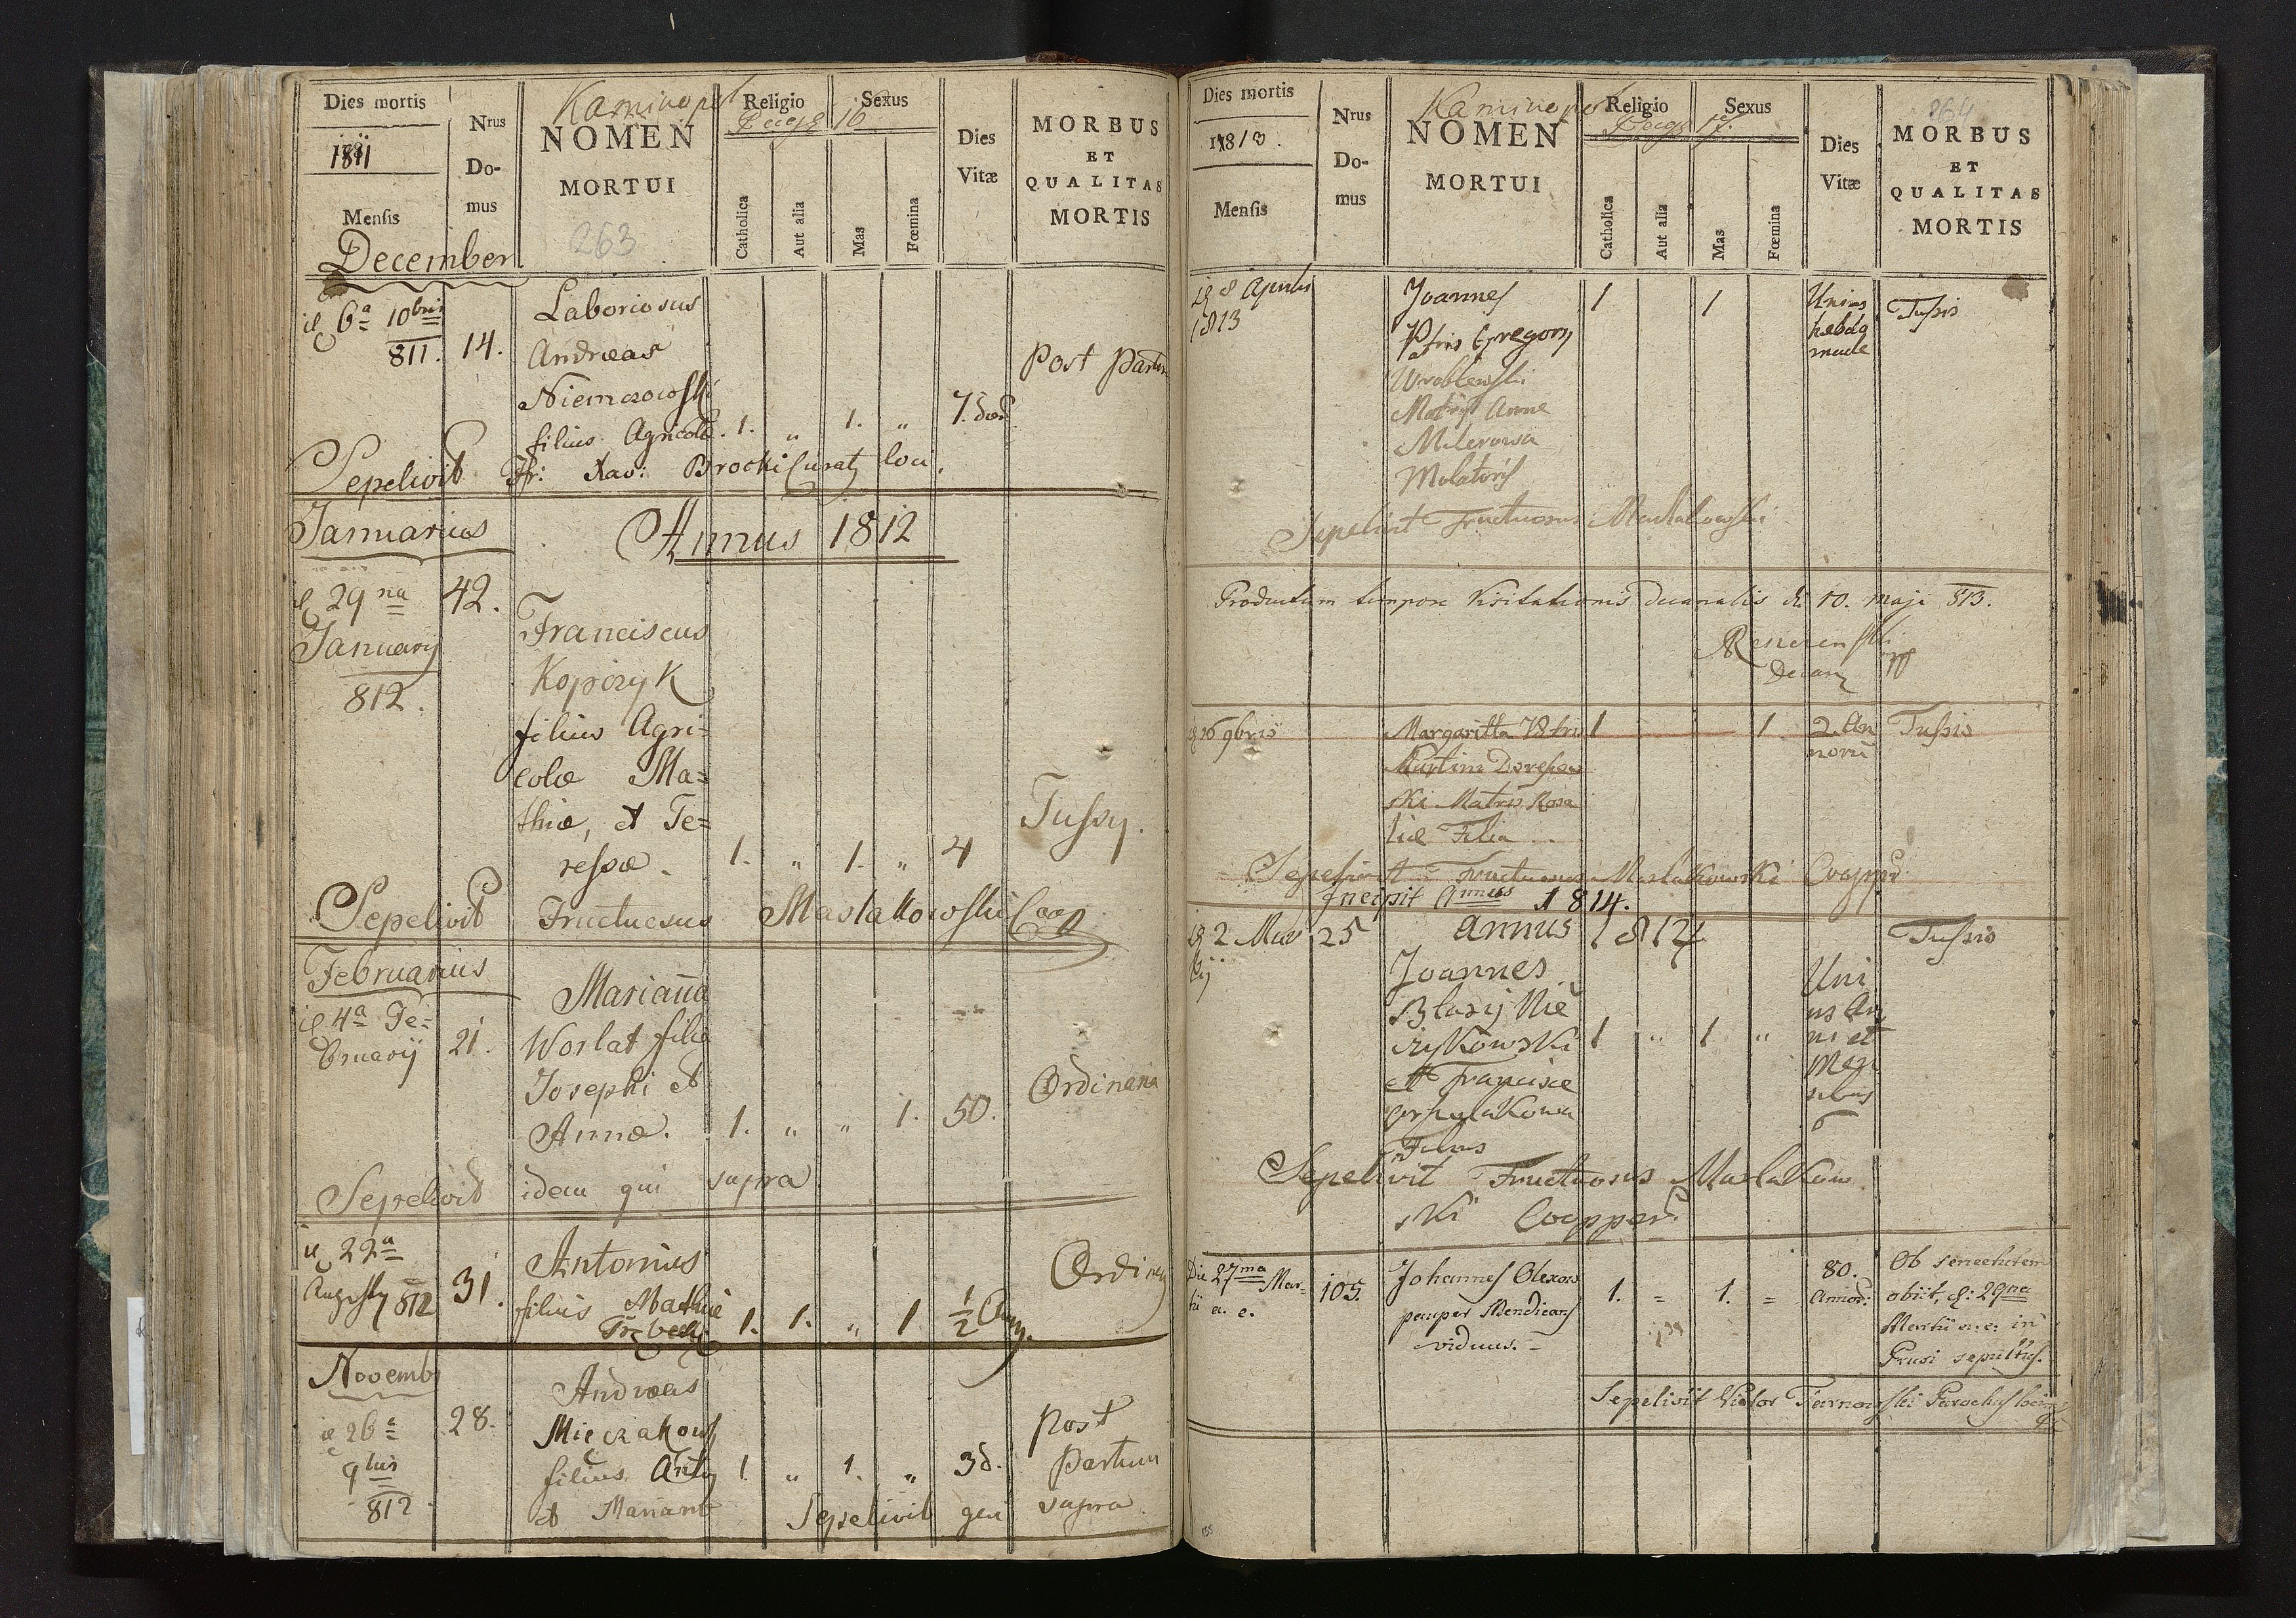 Dies mortis
1811
Mensis
December
Nrus
Do-
mus
Kaminopol
NOMEN
MORTUI
263
Religio
Pag 16
Sexus
Catholica
Aut alia
Mas
Fœmina
Dies
Vitæ
MORBUS
ET
QUALITAS
MORTIS
6a 10bris
811. 14.
Laboriosus
Andreas
Niemczowski
filius Agricolæ. 1. „ 1. „ 7. die
Post Partum
Sepelivit Fr: Xav: Brocki Curaty loci.
Januarius
Annus 1812
29na
January
812.
42.
Franciscus
Kopczyk
filius Agri=
colæ Ma=
thiæ, et Te=
ressæ. 1. „ 1. „ 4
Tussy.
Sepelivit Fructuosus Maslakowski Coop
Februarius
4a Fe=
bruarij
21.
Marianna
Worlat filia
Josephi et
Annæ. 1. „ „ 1. 50.
Ordinaria
Sepelivit idem qui supra
22a
Augusty 812
31.
Antonius
filius Mathiæ
1. 1. „ 1 1/2
Novemb
26a
9bris
812
28.
Andreas
filius Anty 1. „ 1. „ 3d.
et Marianæ
Post
Partum
Sepelivit qui supra
Dies mortis
1813.
Mensis
Nrus
Do-
mus
Kaminopol
NOMEN
MORTUI
Religio
Pag 17.
Sexus
Catholica
Aut alia
Mas
Fœmina
Dies
Vitæ
264
MORBUS
ET
QUALITAS
MORTIS
8 Aprilis
1813
Joannes
Patris Gregory
Wroblewski
Matris Anne
Milerowa
Molatoris
1 1
Unius
hebdo
made
Tussis
Sepelivit Fructuosus Maslakowski
Productum tempore Visitationis decanalis d. 10. maji 813.
Decany
26 9bris
Margaritta Patris
Martini
ski Matris Rosa
liæ Filia
1 1
2. An
noru
Tussis
Sepelivit Fructuosus Maslakowski Cooppr
Incipit Annus 1814.
2 Mar
tij
25
Annus 1814
Joannes
Blasij Nie
czykowski
et Francisce
Filius
1 „ 1 „
Uni
us An
ni et
Men
sibus
6
Tussis
Sepelivit Fructuosus Maslakow
ski Cooppr
Die 27ma Mar-
tii a. c.
105.
Johannes Olexow
pauper Mendicans
viduus. =
1. = 1. =
80.
Annor:
Ob senectutem
obiit, d: 29na
Martii a.c. in
Prusi sepultus.
Sepelivit Victor Tarnowski Parochus loci